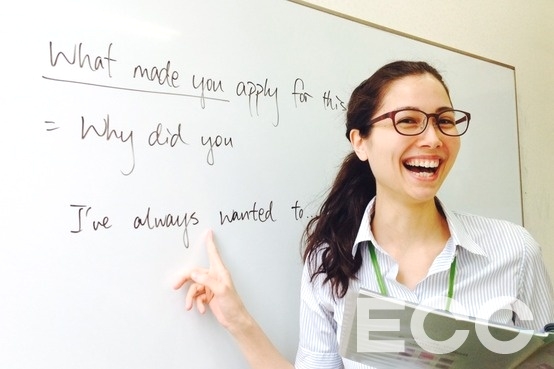 What made you apply for this
= Why did you
I've always wanted to...
ECC